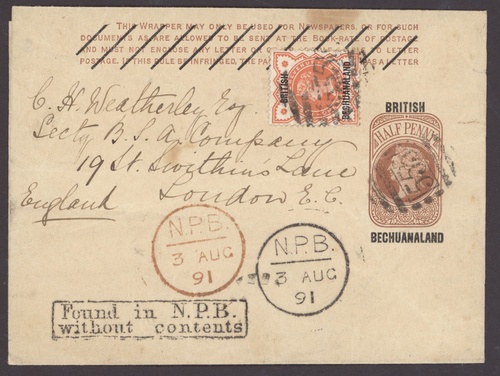 THIS WRAPPER MAY ONLY BE USED FOR NEWSPAPERS, OR FOR SUCH
DOCUMENTS AS ARE ALLOWED TO BE SENT AT THE BOOK-RATE OF POSTAGE
AND MUST NOT ENCLOSE ANY LETTER OR LETTER
POSTAGE. IF THIS RULE BE INFRINGED, THE PA AS A LETTER
BRITISH
BECHUANALAND
C. H. Weatherley Esq.
Secty B. S. A. Company
19 St. Swithin's Lane
London E.C.
England
BRITISH
HALF PENNY
BECHUANALAND
N.P.B.
3 AUG
91
N.P.B.
3 AUG
91
Found in N.P.B.
without contents